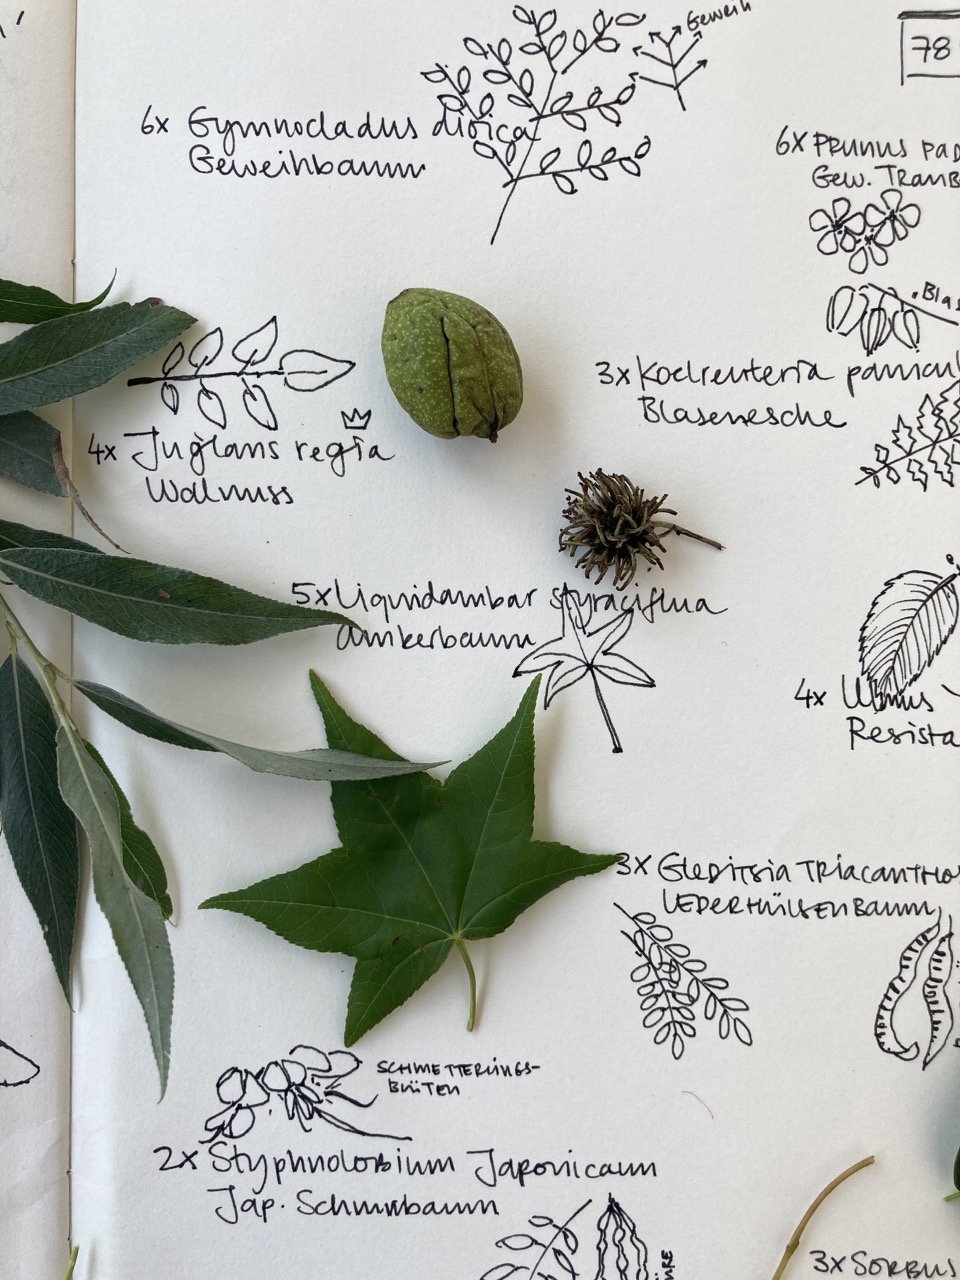 Geweih
78
6x Gymnocladus dioica
Geweihbaum
6x Prunus
Gew.
3x Koelreuteria
Blasenesche
4x Juglans regia
Walnuss
5x Liquidambar styraciflua
Amberbaum
4x Ulmus
3x GLEDITSIA TRIACANTHOS
LEDERHÜLSENBAUM
SCHMETTERLINGS-
BLÜTEN
2x Styphnolobium Japonicum
Jap. Schnurbaum
3x SORBUS